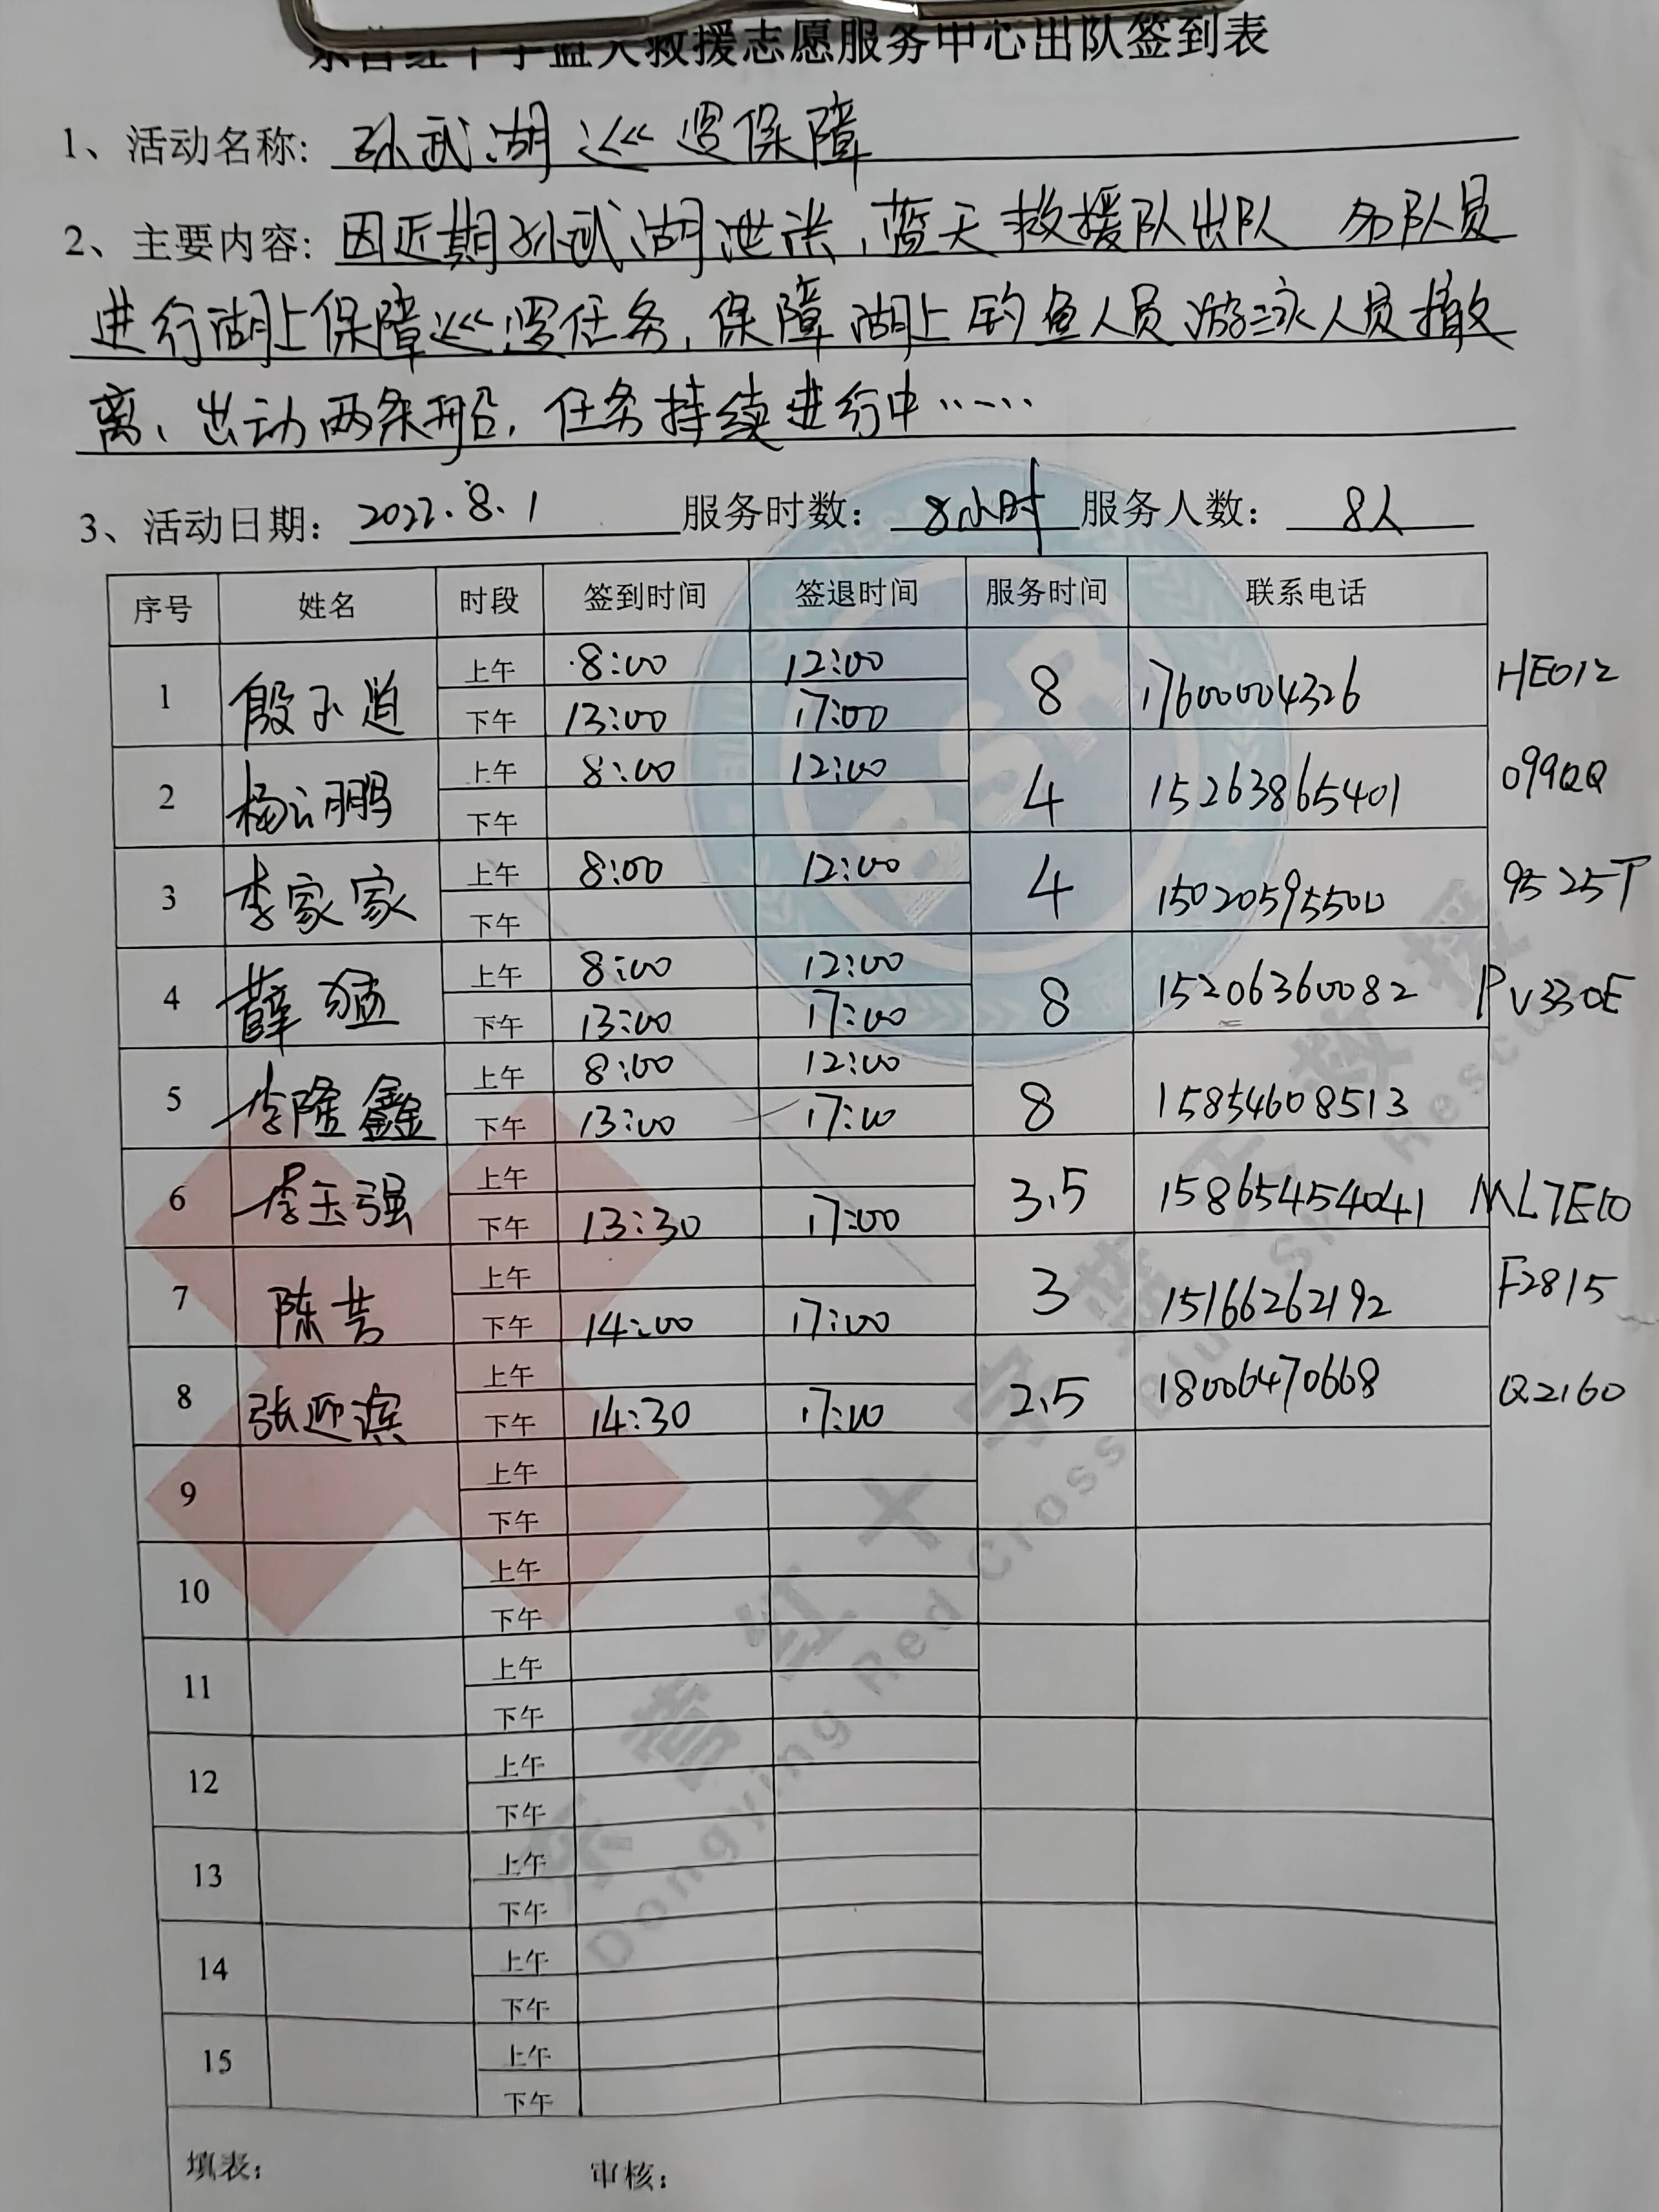 东营红十字蓝天救援志愿服务中心出队签到表
1、活动名称: 孙武湖巡逻保障
2、主要内容: 因近期孙武湖泄洪,蓝天救援队出队 名队员
进行湖上保障巡逻任务,保障湖上钓鱼人员游泳人员撤
离、出动两条船,任务持续进行中……
3、活动日期: 2022.8.1 服务时数: 8小时 服务人数: 8人
序号 姓名 时段 签到时间 签退时间 服务时间 联系电话
1 上午 8:00 12:00 8 17600004326 HE012
下午 13:00 17:00
2 杨云鹏 上午 8:00 12:00 4 15263865401 099QQ
下午
3 李家家 上午 8:00 12:00 4 15020595500 9525T
下午
4 薛猛 上午 8:00 12:00 8 15206360082 PV330E
下午 13:00 17:00
5 李隆鑫 上午 8:00 12:00 8 15854608513
下午 13:00 17:00
6 李玉强 上午 3.5 15865454041 ML7E10
下午 13:30 17:00
7 陈芸 上午 3 15166262192 F2815
下午 14:00 17:00
8 张迎滨 上午 2.5 18006470668 Q2160
下午 14:30 17:00
9 上午
下午
10 上午
下午
11 上午
下午
12 上午
下午
13 上午
下午
14 上午
下午
15 上午
下午
填表: 审核:
BSR
东营红十字蓝天救援
Dongying Red Cross Blue Sky Rescue